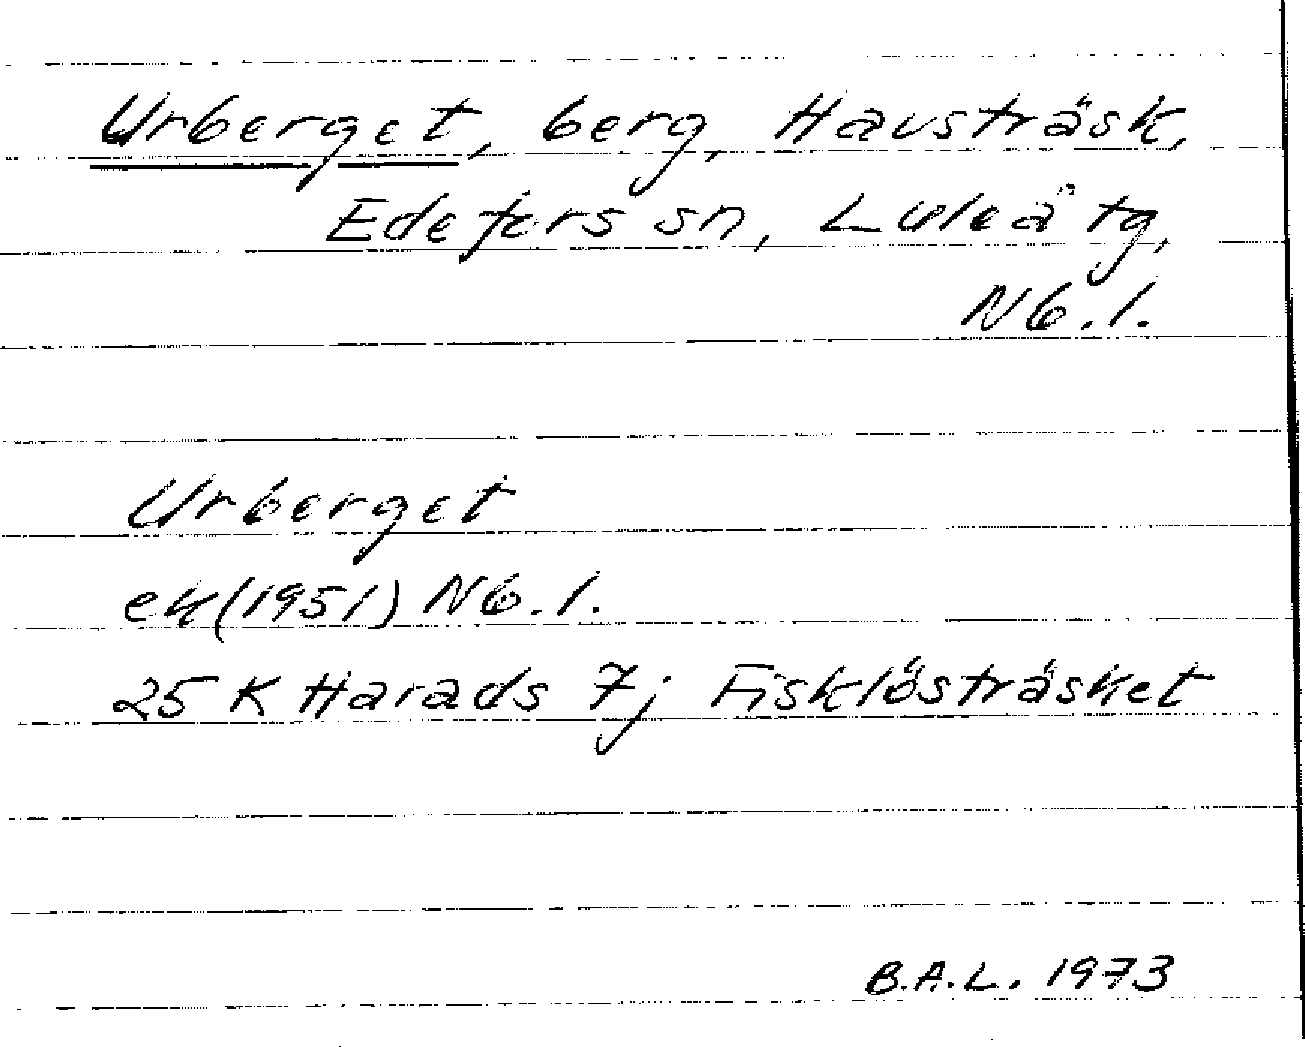 Urberget, berg, Havsträsk,
Edefors sn, Luleå tg,
Nb.l.
Urberget
ek(1951) Nb.l.
25 K Harads 7j Fisklösträsket
B.A.L. 1973